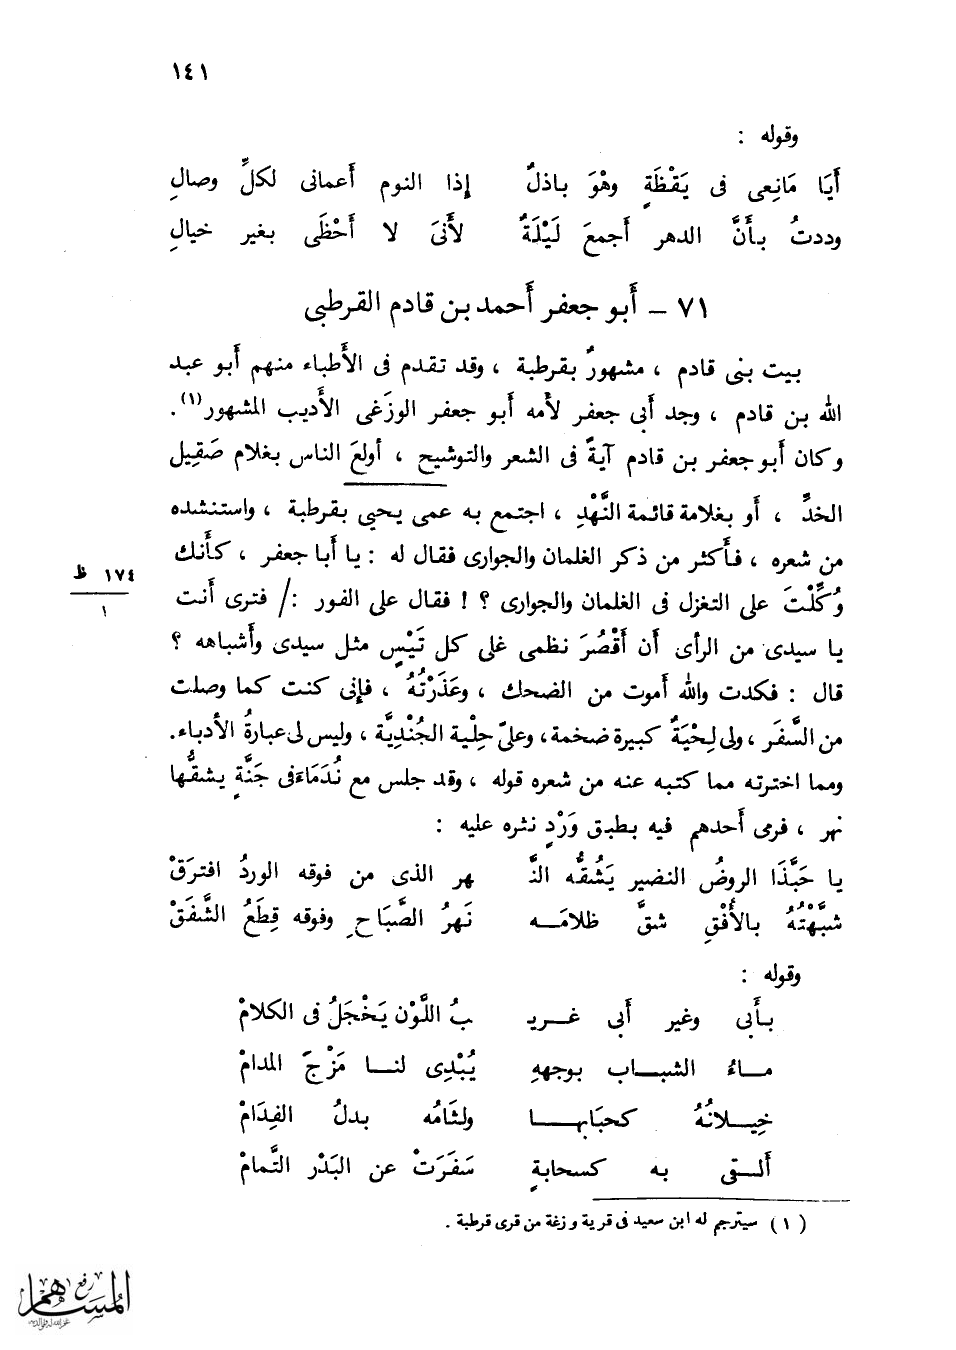 ١٤١
وقوله :
أَيَا مَانِعِى فى يَقْظَةٍ وهْوَ باذلٌ إذا النوم أَعمانى لكلِّ وصالِ
وددتُ بأَنَّ الدهر أَجمعَ لَيْلَةٌ لأَنىَ لا أَحْظَى بغير خيالِ
٧١ – أَبو جعفر أَحمد بن قادم القرطبى
بيت بنى قادم ، مشهورٌ بقرطبة ، وقد تقدم فى الأَطباء منهم أَبو عبد
الله بن قادم ، وجد أَبى جعفر لأمه أَبو جعفر الوزَغى الأَديب المشهور(١).
وكان أَبو جعفر بن قادم آيةً فى الشعر والتوشيح ، أَولعَ الناس بغلام صَقِيل
الخدِّ ، أَو بغلامة قائمة النَّهْدِ ، اجتمع به عمى يحيى بقرطبة ، واستنشده
من شعره ، فأَكثر من ذكر الغلمان والجوارى فقال له : يا أَبا جعفر ، كأَنك
وُكِّلْتَ على التغزل فى الغلمان والجوارى ؟ ! فقال على الفور :/ فترى أَنت
١٧٤ ظ
١
يا سيدى من الرأى أَن أَقْصُرَ نظمى على كل تَيْسٍ مثل سيدى وأَشباهه ؟
قال : فكدت والله أَموت من الضحك ، وعَذَرْتُهُ ، فإنى كنت كما وصلت
من السَّفَر ، ولى لِحْيَةٌ كبيرة ضخمة، وعلىّ حِلْية الجُنْدِيَّة ، وليس لى عبارةُ الأُدباء.
ومما اخترته مما كتبه عنه من شعره قوله ، وقد جلس مع نُدَمَاءَ فى جَنَّةٍ يشقُّها
نهر ، فرمى أَحدهم فيه بطبق وَرْدٍ نثره عليه :
يا حَبَّذَا الروضُ النضير يَشُقُّه النَّـ ـهر الذى من فوقه الوردُ افترَقْ
شبَّهْتُهُ بالأُفْقِ شقَّ ظلامَـــه نَهرُ الصَّباحِ وفوقه قِطَعُ الشَّفَقْ
وقوله :
بأَبى وغير أَبى غـــريـ ـبُ اللَّوْن يَخْجَلُ فى الكلامْ
مـــاءُ الشبـــاب بوجههِ يُبْدِى لنـــا مَزْجَ المدامْ
خِيـــلانُهُ كحبَابهـــا ولثَامُه بدلُ الفِدَامْ
أَلـــقى به كسحابةٍ سَفَرَتْ عن البَدْر التَّمامْ
(١) سيترجم له ابن سعيد فى قرية وزغة من قرى قرطبة .
رفع
المساهم